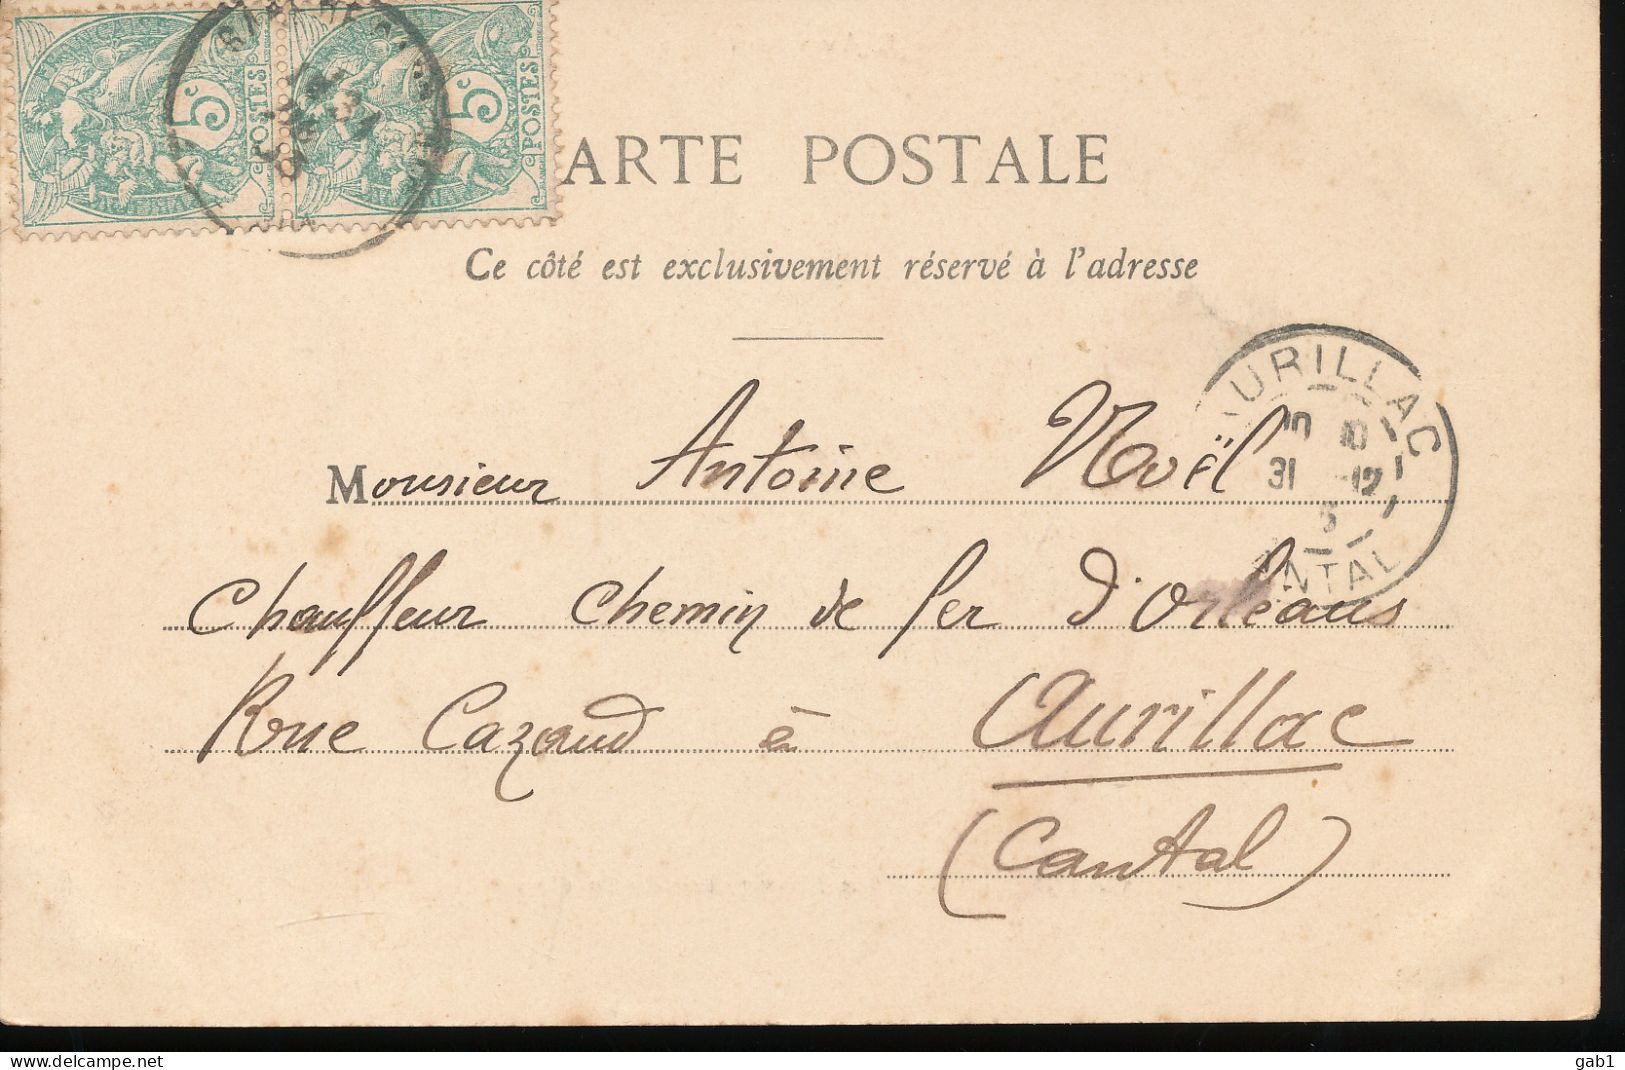 5c
POSTES
5c
POSTES
ARTE POSTALE
Ce côté est exclusivement réservé à l'adresse
AURILLAC
10 10
31 12
3
NTAL
Monsieur Antoine Noël
Chauffeur Chemin de fer d'Orléans
Rue Cazaud à Aurillac
(Cantal)
www.delcampe.net
gab1